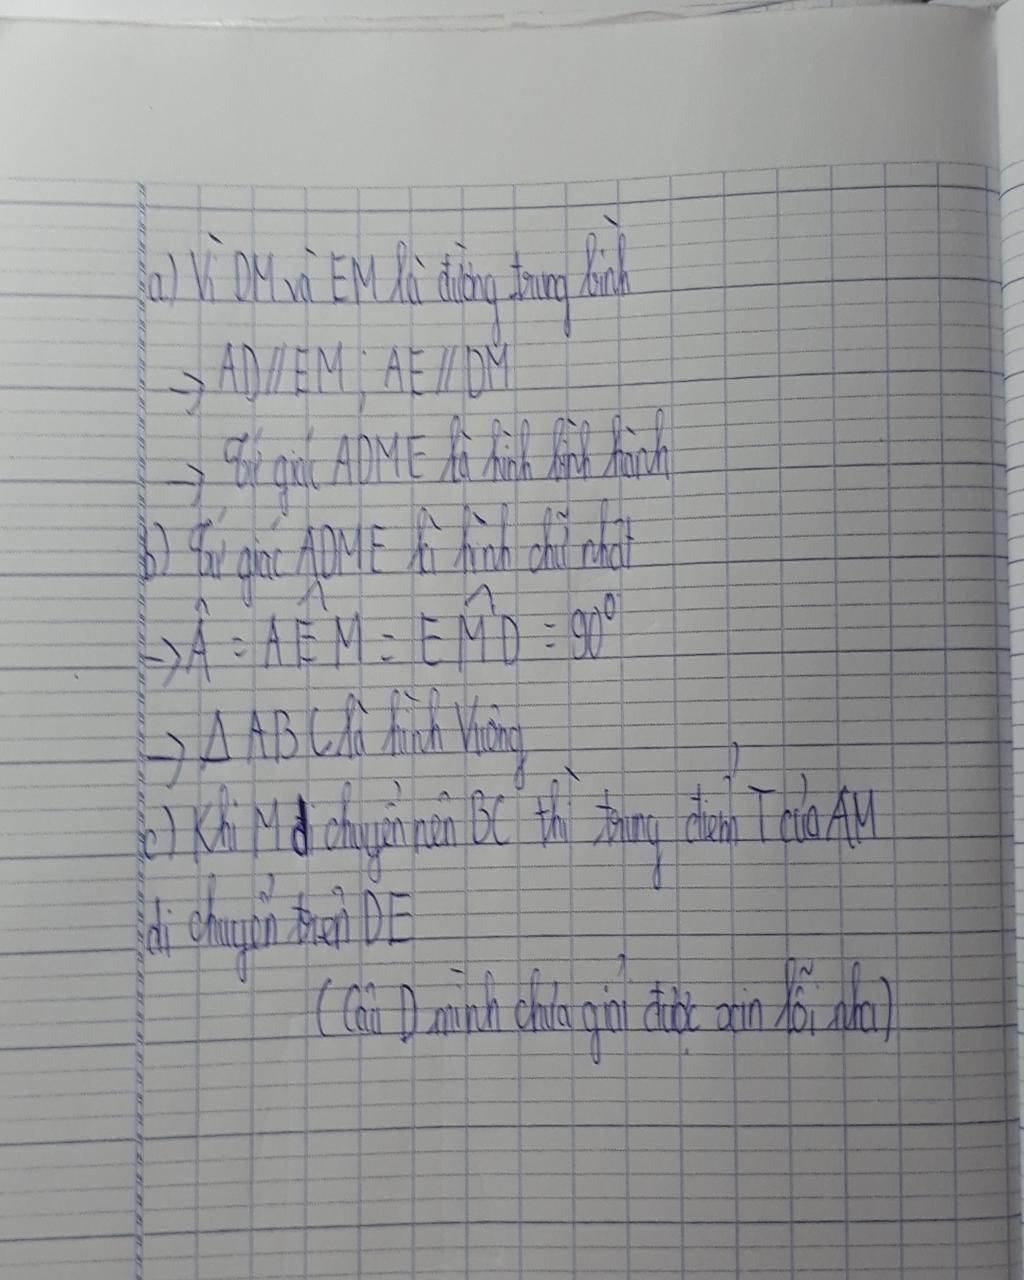 a) Vì DM và EM là đường trung bình
→ AD // EM ; AE // DM
→ Tứ giác ADME là hình bình hành
b) Tứ giác ADME là hình chữ nhật
→ Â = AÊM = EM̂D = 90⁰
→ Δ ABC là hình vuông
c) Khi M di chuyển nên BC thì trung điểm T của AM
di chuyển trên DE
(Câu D mình chưa giải được xin lỗi nha)